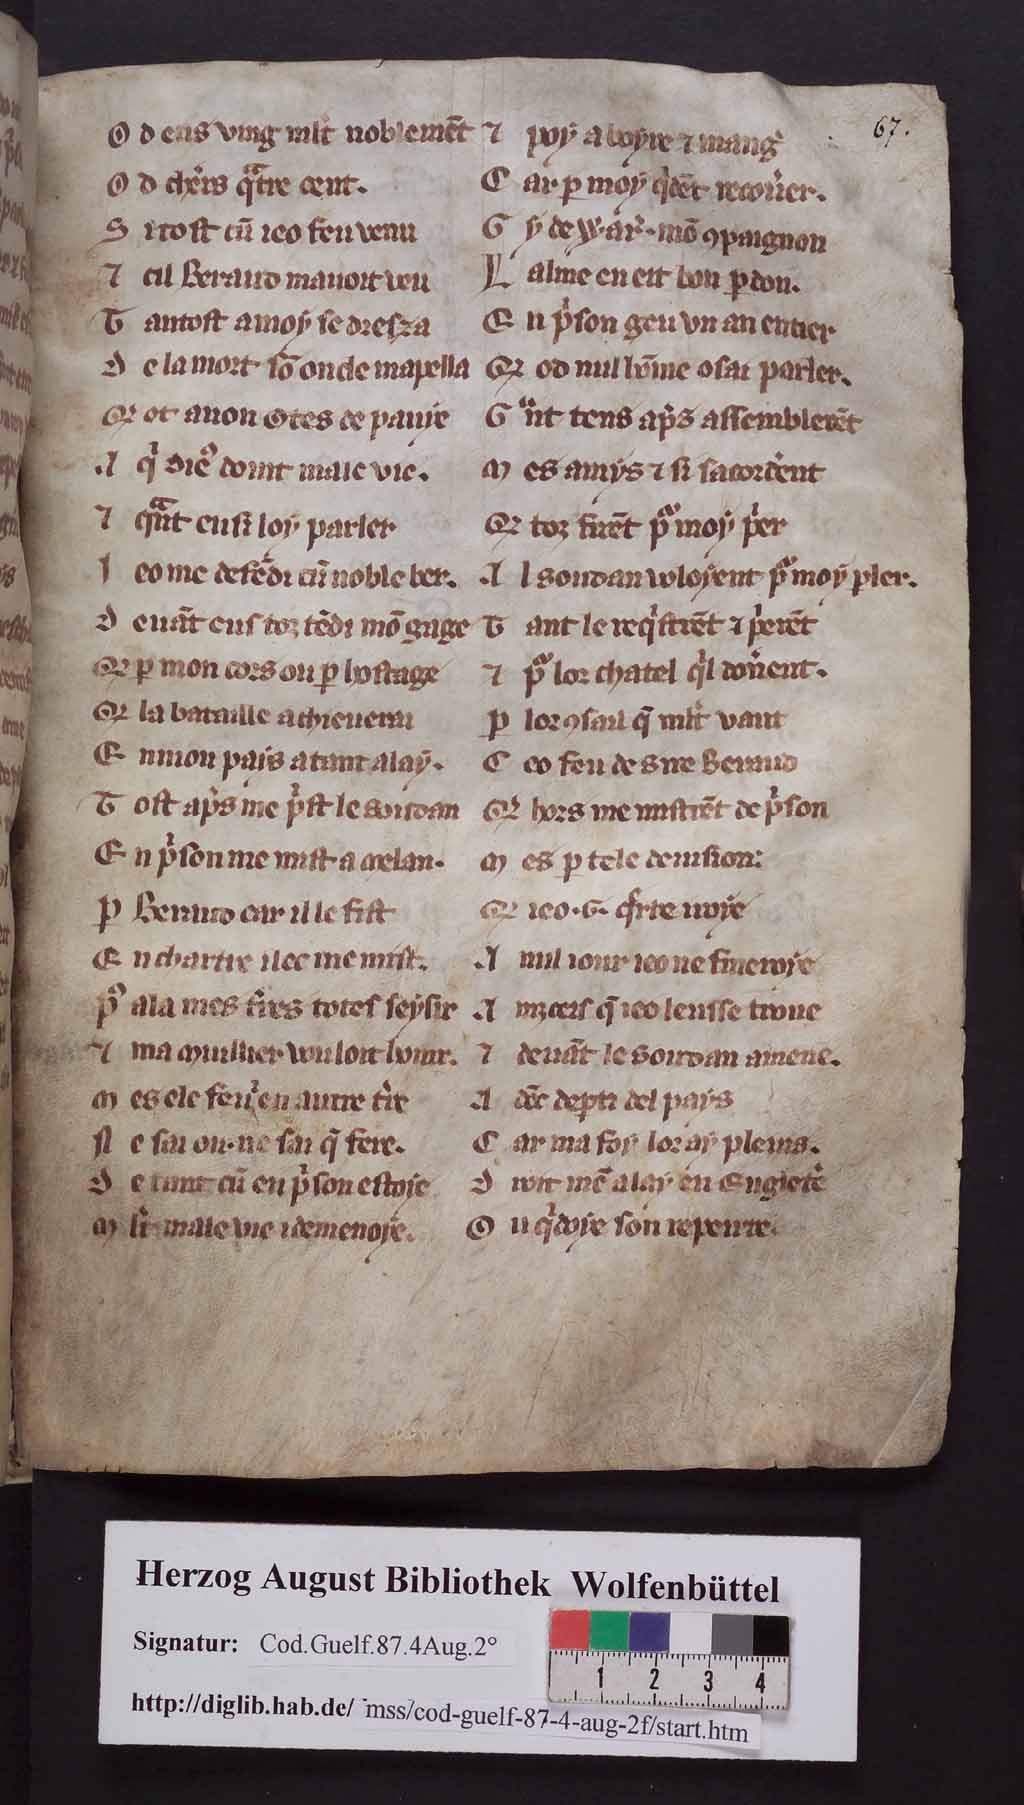 67.
O d eus ving mlt̉ noblemēt
O d ch'rs qᵃtre cent.
S i tost cū ieo feu venu
⁊ cil Beraud mauoit veu
T antost a moẏ se dresza
D e la mort sō oncle mapella
Q ot auon Otes de pauie
A q' dieˀ doint male vie.
⁊ qᵃnt ensi loẏ parler
I eo me defēdi cū noble ber.
D euāt eus toz tēdi mō gage
Q ꝑ mon cors ou ꝑ hostage
Q la bataille achieuerai
E n mon pais atant alaẏ.
T ost ap's me p'st le soudan
E n p'son me mist a melan.
P Beraud car il le fist
E n chartre ilec me mist.
pᵒ ala mes t'res totes seẏsir
⁊ ma muillier vouloit honir.
M es ele feuj en autre t're
N e sai ou. ne sai q̄ fere.
D e tant cū en p'son estoie
M lt̉ male vie idemenoie.
⁊ poẏ a boyre ⁊ mang'
C ar ꝑ moẏ q'dēt recou'er.
G ẏ de W·ar'. mō ꝯpaignon
L alme en eit bon ꝑdon.
E n p'son geu vn an entier
Q od nul hōme osai parler.
G ᵃnt tens ap's assemblerēt
M es amẏs ⁊ si sacord'ent
Q toz furēt pᵒ moẏ p'er
A l soudan voloẏent pᵒ moẏ ꝑler.
T ant le req'strēt ⁊ p'erēt
⁊ pᵒ lor chatel q'l don'ent.
P lor ꝯsail q̄ mlt̉ vaut
C eo feu de sire Beraud
Q hors me mistrēt de p'son
M es ꝑ tele deuision:
Q ieo .G. q'rre iroie
A nul iour ieo ne fineroie
A inzceis q̄ ieo leusse troue
⁊ deuāt le soudan amene.
A dōc deꝑti del paẏs
C ar ma foẏ lor aẏ pleuis.
D roit mē alaẏ en Engleterē
O u q'doie son repeire.
Herzog August Bibliothek Wolfenbüttel
Signatur: Cod.Guelf.87.4Aug.2°
1 2 3 4
http://diglib.hab.de/ mss/cod-guelf-87-4-aug-2f/start.htm